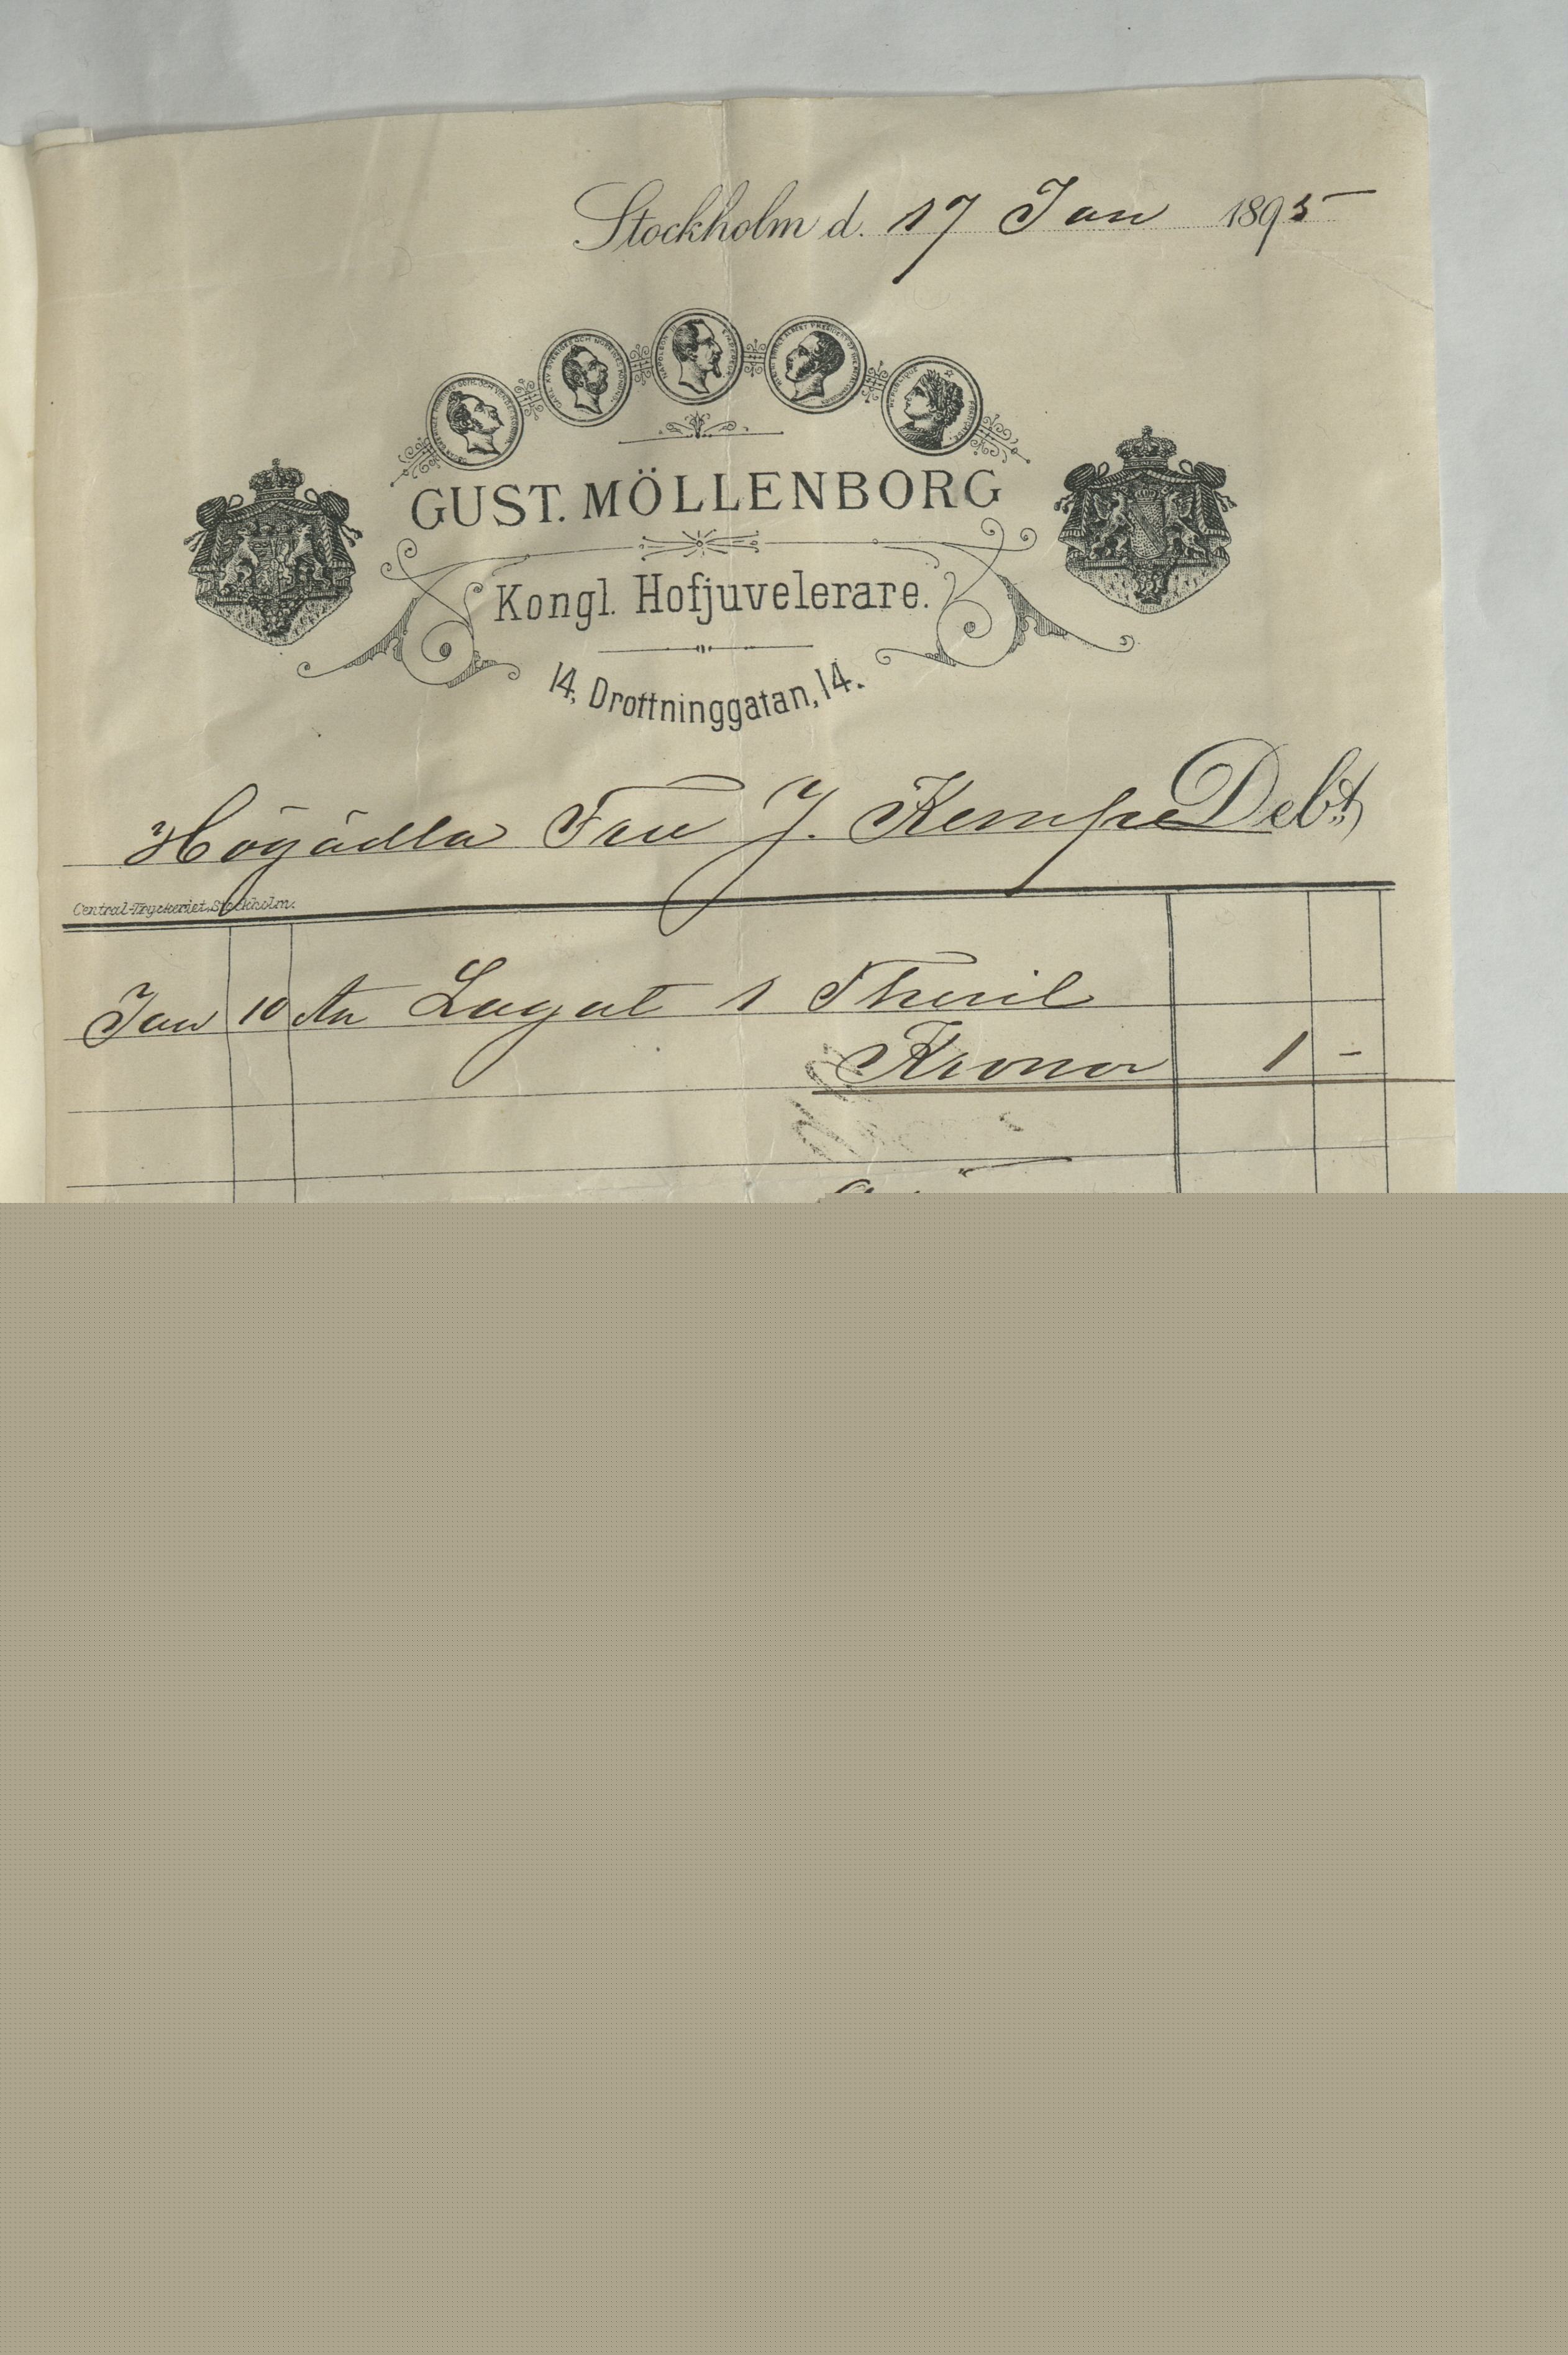 Stockholm d. 17 Jan 1895
GUST. MÖLLENBORG
Kongl. Hofjuvelerare.
14, Drottninggatan, 14.
Högädla Fru J. Kempe Debt
Central-Tryckeriet, Stockholm.
Jan 10 An Lagat 1 Thesil
Kronor 1 -